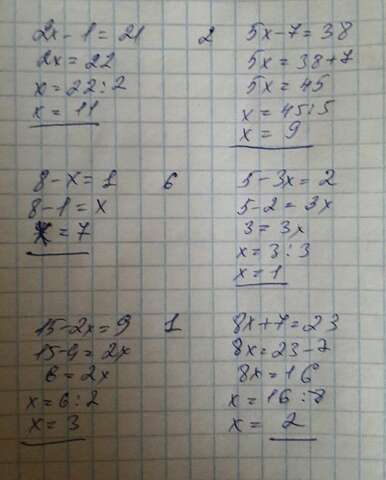 2x - 1 = 21
2x = 22
x = 22 : 2
x = 11
2
5x - 7 = 38
5x = 38 + 7
5x = 45
x = 45 : 5
x = 9
8 - x = 1
8 - 1 = x
x = 7
6
5 - 3x = 2
5 - 2 = 3x
3 = 3x
x = 3 : 3
x = 1
15 - 2x = 9
15 - 9 = 2x
6 = 2x
x = 6 : 2
x = 3
1
8x + 7 = 23
8x = 23 - 7
8x = 16
x = 16 : 8
x = 2